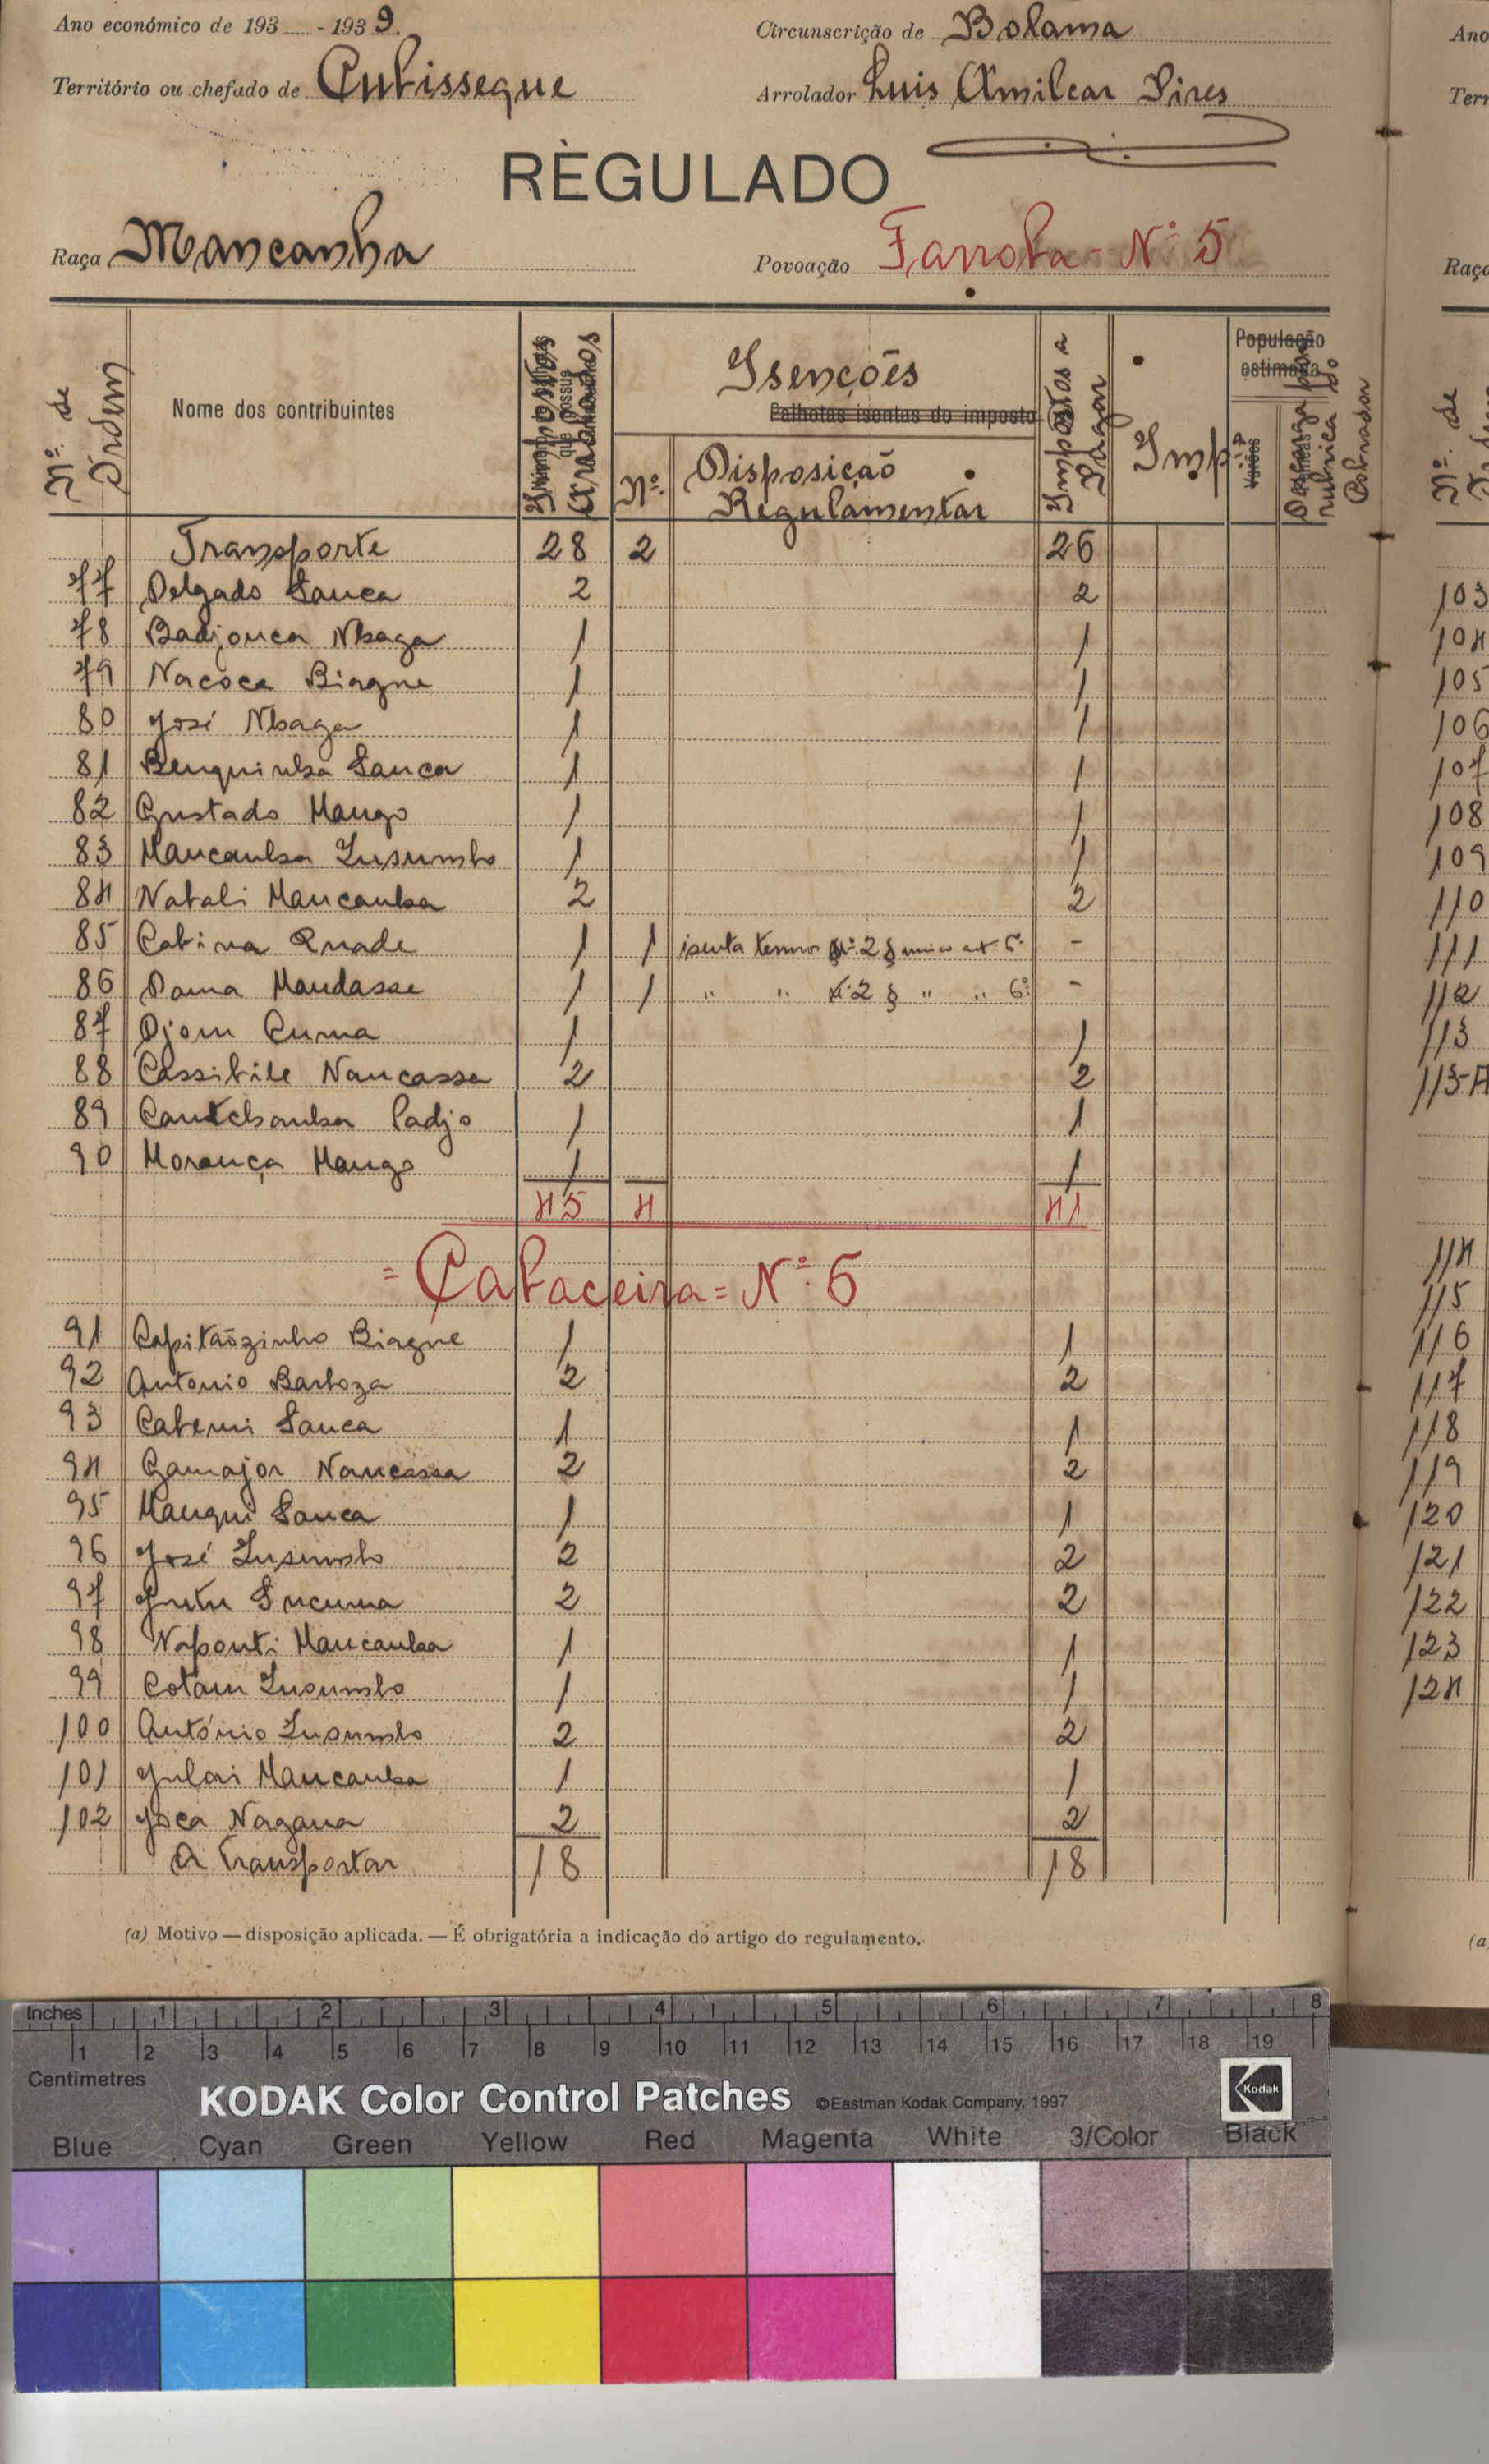 Ano económico de 193 - 1939.
Circunscrição de Bolama
Território ou chefado de Cutissegue
Arrolador Luis Amilcar Pires
RÈGULADO
Raça Mancanha
Povoação Farroba - Nº 5
Nº. de Órdem
Nome dos contribuintes
Impostos Arrolados
Isenções
Palhotas isentas do imposto
Nº.
Disposição Regulamentar
Impostos a Pagar
Imp.
População estimada
Descarga por rubrica do Cobrador
Transporte 28 2 26
77 Delgado Sanca 2 2
78 Badjouca Nbaga 1 1
79 Nacoca Biague 1 1
80 José Nbaga 1 1
81 Benquinha Sanca 1 1
82 Gustado Mango 1 1
83 Mancanha Insumbo 1 1
84 Natali Mancanha 2 2
85 Cabina Quade 1 1 isenta termos Nº. 2 § unico art. 6º -
86 Dama Mandasse 1 1 " " Nº. 2 § " " 6º. -
87 Djom Cuma 1 1
88 Cassibile Nancassa 2 2
89 Cantchanha Padjo 1 1
90 Morança Mango 1 1
45 4 41
= Cabaceira = Nº. 6
91 Capitãozinho Biague 1 1
92 Antonio Barboza 2 2
93 Catemi Sanca 1 1
94 Gamajor Nancassa 2 2
95 Manqui Sanca 1 1
96 José Insumbo 2 2
97 Jutu Sucuma 2 2
98 Naponti Mancanha 1 1
99 Cotam Insumbo 1 1
100 António Insumbo 2 2
101 Julai Mancanha 1 1
102 Joca Nagana 2 2
A Transportar 18 18
(a) Motivo — disposição aplicada. — É obrigatória a indicação do artigo do regulamento.
Ano
Terr
Raça
Nº. de
103
104
105
106
107
108
109
110
111
112
113
113-A
114
115
116
117
118
119
120
121
122
123
124
(a
Inches 1 2 3 4 5 6 7 8
1 2 3 4 5 6 7 8 9 10 11 12 13 14 15 16 17 18 19
Centimetres
KODAK Color Control Patches ©Eastman Kodak Company, 1997 Kodak
Blue Cyan Green Yellow Red Magenta White 3/Color Black